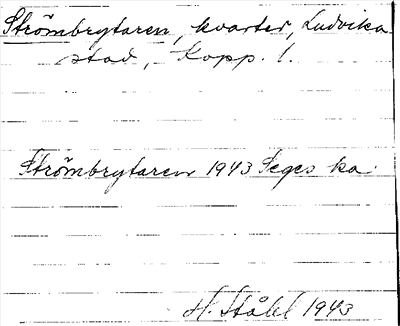 Strömbrytaren, kvarter, Ludvika
stad, Kopp. l.
Strömbrytaren 1943 Seges ka.
H. Ståhl 1943